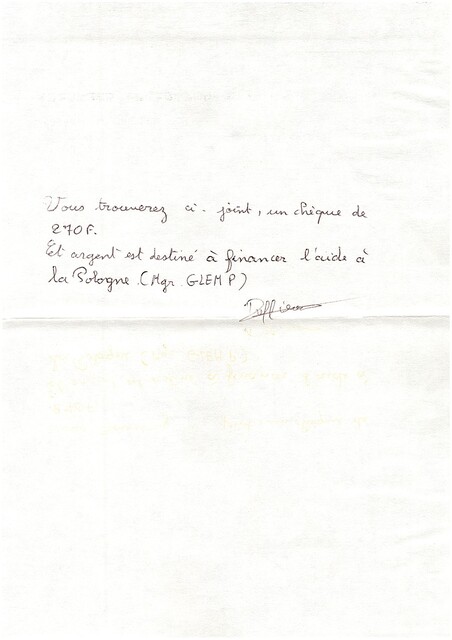 Vous trouverez ci-joint, un chèque de
270F.
Et argent est destiné à financer l'aide à
la Pologne (Mgr. GLEMP)